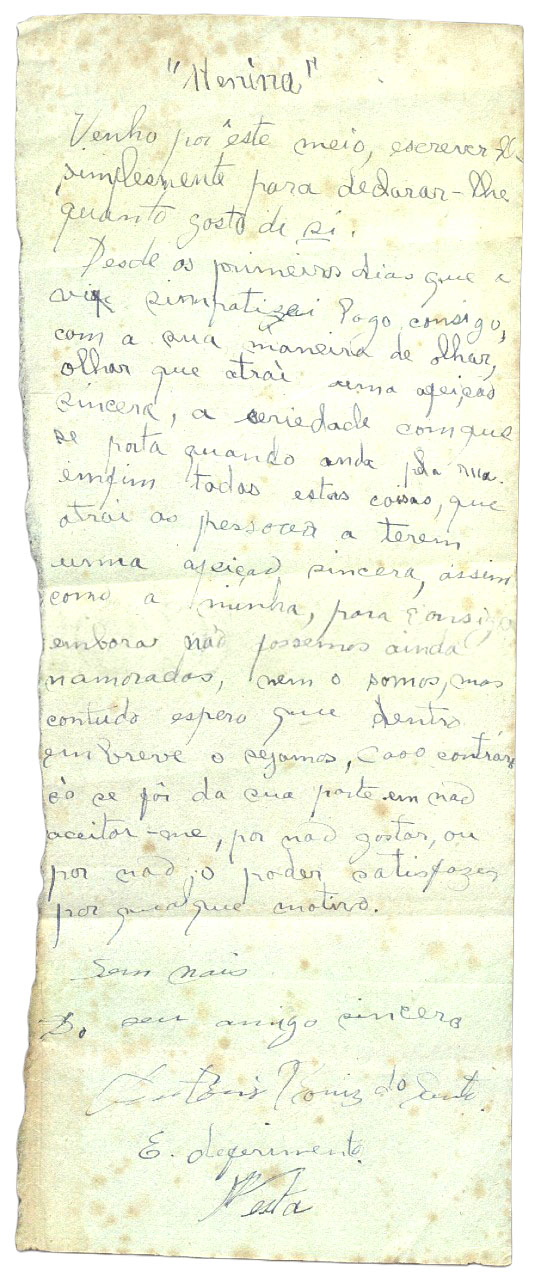 "Menina"
Venho por êste meio, escrever-lhe
simplesmente para declarar-lhe
quanto gosto de si.
Desde os primeiros dias que a
vi simpatizei logo consigo,
com a sua maneira de olhar,
olhar que atrai uma afeição
sincera, a seriedade com que
se porta quando anda pela rua.
emfim todas estas coisas, que
atrai as pessoas a terem
uma afeição sincera, assim
como a minha, para consigo
embora não fossemos ainda
namorados, nem o somos, mas
contudo espero que dentro
em breve o sejamos, caso contrár
io se fôr da sua parte em não
aceitar-me, por não gostar, ou
por não o poder satisfazer
por qualque motivo.
Sem mais
D. seu amigo sincero
do
E. deferimento